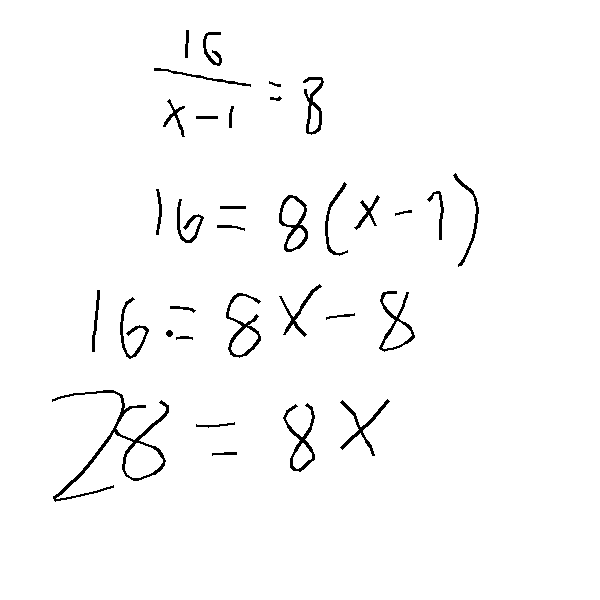 16/(x-1) = 8
16 = 8(x-1)
16 = 8x - 8
28 = 8x